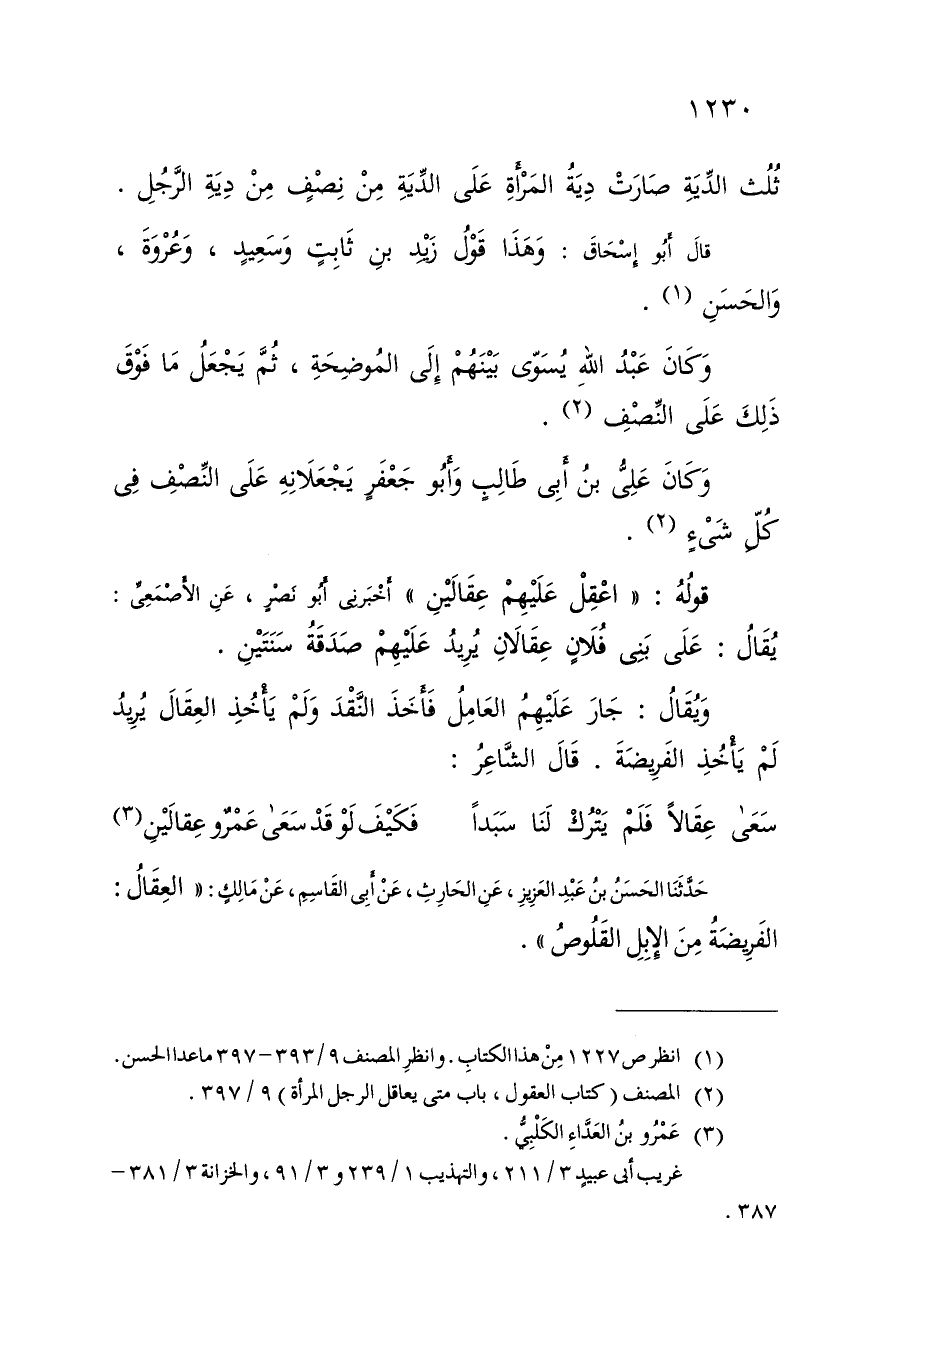 ١٢٣٠
ثُلُث الدِّيَةِ صَارَتْ دِيَةُ المَرْأَةِ عَلَى الدِّيَةِ مِنْ نِصْفٍ مِنْ دِيَةِ الرَّجُلِ .
قالَ أَبُو إِسْحَاقَ : وَهَذَا قَوْلُ زَيْدِ بنِ ثَابِتٍ وَسَعِيدٍ ، وَعُرْوَةَ ،
وَالحَسَنِ (١) .
وَكَانَ عَبْدُ اللهِ يُسَوّى بَيْنَهُمْ إِلَى المُوضِحَةِ ، ثُمَّ يَجْعَلُ مَا فَوْقَ
ذَلِكَ عَلَى النِّصْفِ (٢) .
وَكَانَ عَلِىُّ بنُ أَبِى طَالِبٍ وَأَبُو جَعْفَرٍ يَجْعَلَانِهِ عَلَى النِّصْفِ فِى
كُلِّ شَىْءٍ (٢) .
قولُهُ : « اعْقِلْ عَلَيْهِمْ عِقَالَيْنِ » أَخْبَرنِى أَبُو نَصْرٍ ، عَنِ الأَصْمَعِىِّ :
يُقَالُ : عَلَى بَنِى فُلَانٍ عِقَالَانِ يُرِيدُ عَلَيْهِمْ صَدَقَةُ سَنَتَيْنِ .
وَيُقَالُ : جَارَ عَلَيْهِمُ العَامِلُ فَأَخَذَ النَّقْدَ وَلَمْ يَأْخُذِ العِقَالَ يُرِيدُ
لَمْ يَأْخُذِ الفَرِيضَةَ . قَالَ الشَّاعِرُ :
سَعَىٰ عِقَالاً فَلَمْ يَتْرُكْ لَنَا سَبَداً فَكَيْفَ لَوْ قَدْ سَعَىٰ عَمْرٌو عِقالَيْنِ (٣)
حَدَّثَنَا الحَسَنُ بنُ عَبْدِ العَزِيزِ ، عَنِ الحَارِثِ ، عَنْ أَبِى القَاسِمِ ، عَنْ مَالِكٍ : « العِقَالُ :
الفَرِيضَةُ مِنَ الإِبِلِ القَلُوصُ » .
(١) انظر ص ١٢٢٧ مِنْ هذا الكتابِ . وانظرِ المصنف ٩ / ٣٩٣ – ٣٩٧ ماعدا الحسن .
(٢) المصنف ( كتاب العقول ، باب متى يعاقل الرجل المرأة ) ٩ / ٣٩٧ .
(٣) عَمْرُو بنُ العَدَّاءِ الكَلْبِىُّ .
غريب أبى عبيدٍ ٣ / ٢١١ ، والتهذيب ١ / ٢٣٩ و ٣ / ٩١ ، والخزانة ٣ / ٣٨١ –
٣٨٧ .